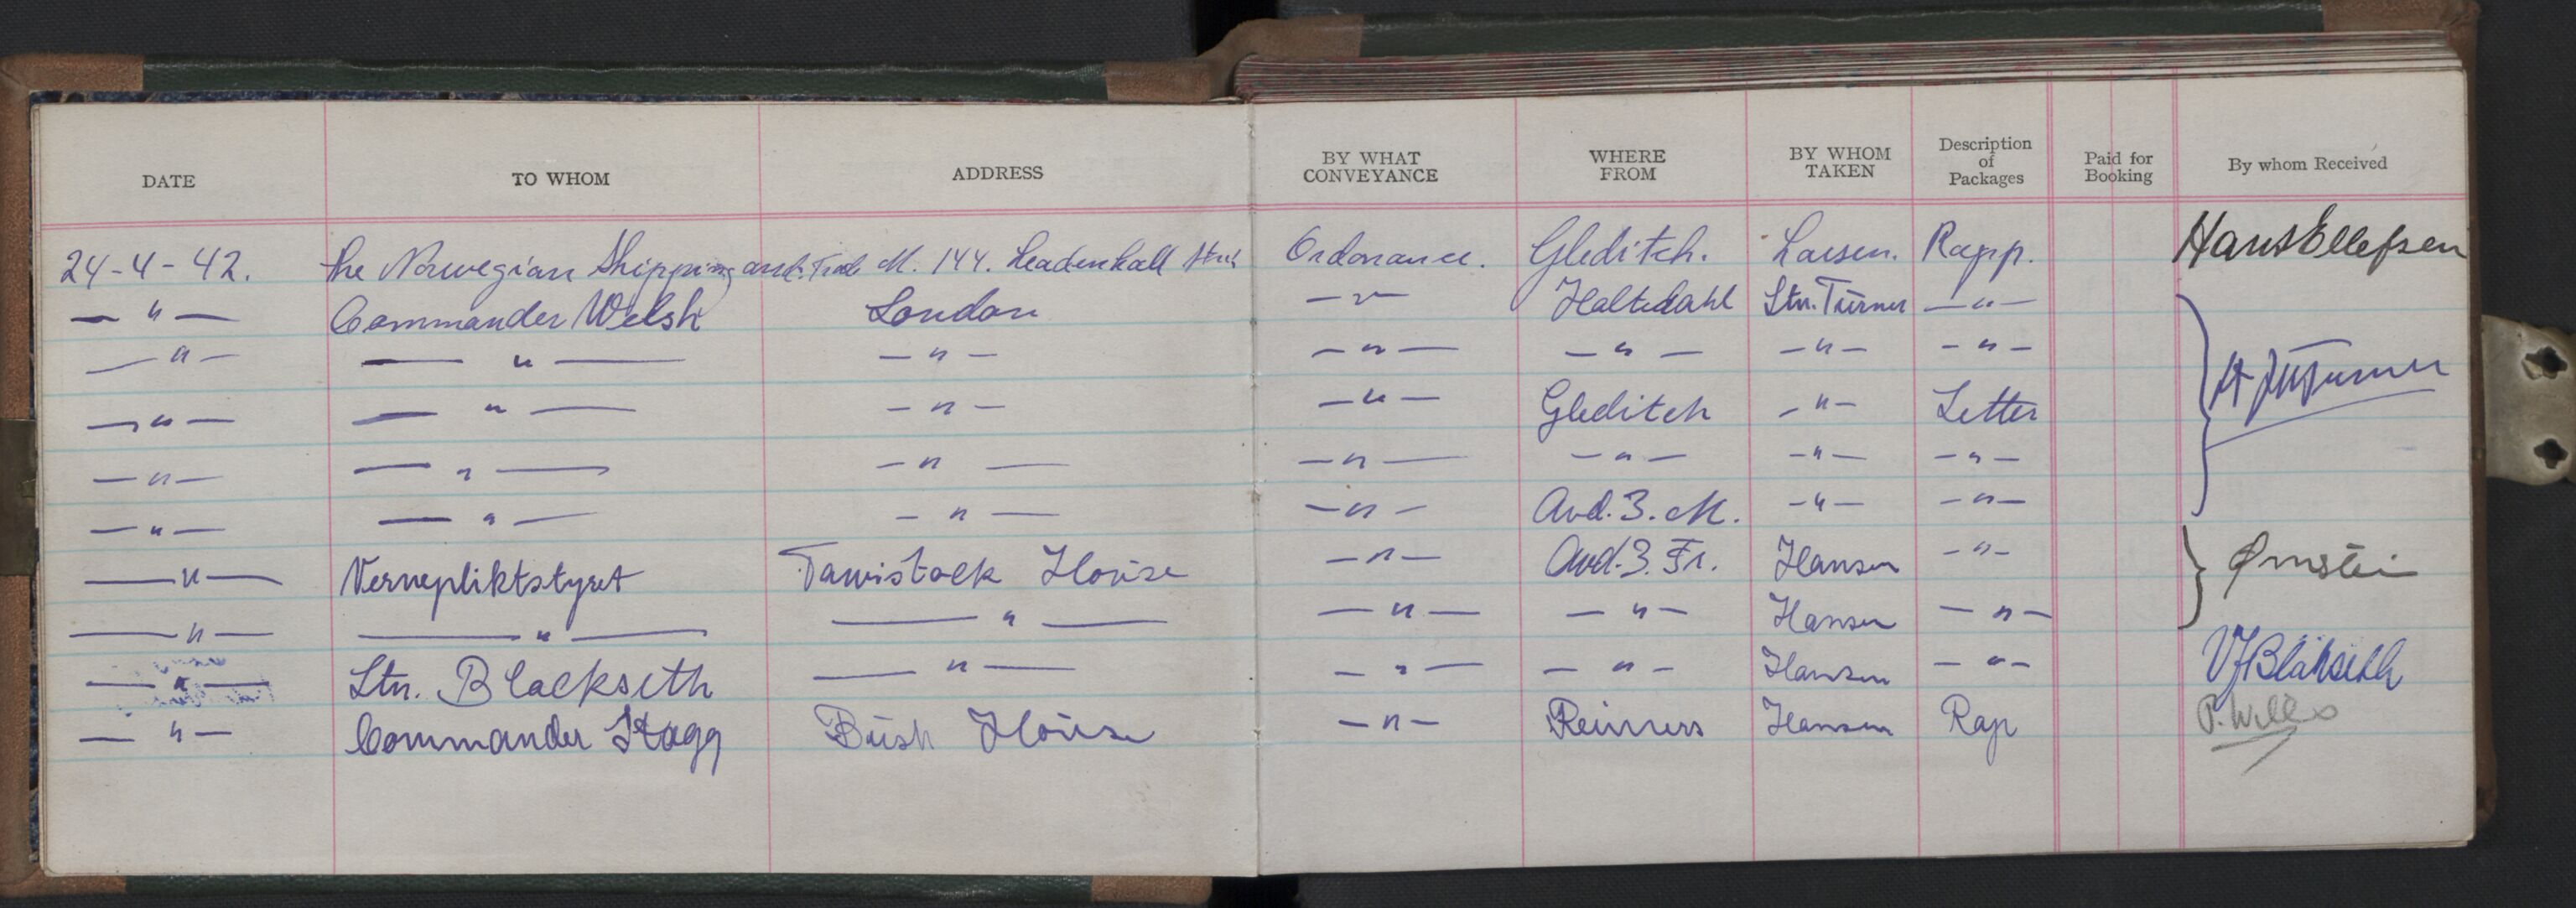 DATE TO WHOM ADDRESS BY WHAT CONVEYANCE WHERE FROM BY WHOM TAKEN Description of Packages Paid for Booking By whom Received
24-4-42. The Norwegian Shipping and Trade M. 144. Leadenhall Ordonance. Gleditch. Larsen. Rapp. Hans Ellefsen
— " — Commander Welsh London — " — Holtedahl Ltn. Turner — " —
— " — — " — — " — — " — — " — — " — — " — Turner
— " — — " — — " — — " — Gleditch — " — Letter
— " — — " — — " — — " — — " — — " — — " —
— " — — " — — " — — " — Avd. 3. M. — " — — " —
— " — Vernepliktstyret Tawistock House — " — Avd. 3. Fr. Hansen — " — Ørnstein
— " — — " — — " — — " — — " — Hansen — " —
— " — Ltn. Blackseth — " — — " — — " — Hansen — " — Blakseth
— " — Commander Stagg Bush House — " — Reimers Hansen Rap P. Wills